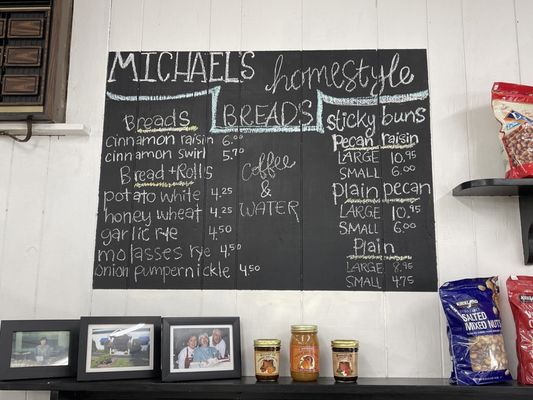 MICHAEL'S homestyle
BREADS
Breads
cinnamon raisin 6.00
cinnamon swirl 5.70
Bread + Rolls
potato white 4.25
honey wheat 4.25
garlic rye 4.50
molasses rye 4.50
onion pumpernickle 4.50
Coffee
&
WATER
sticky buns
Pecan raisin
LARGE 10.95
SMALL 6.00
Plain pecan
LARGE 10.95
SMALL 6.00
Plain
LARGE 8.95
SMALL 4.75
KIRKLAND
SALTED
MIXED NUTS